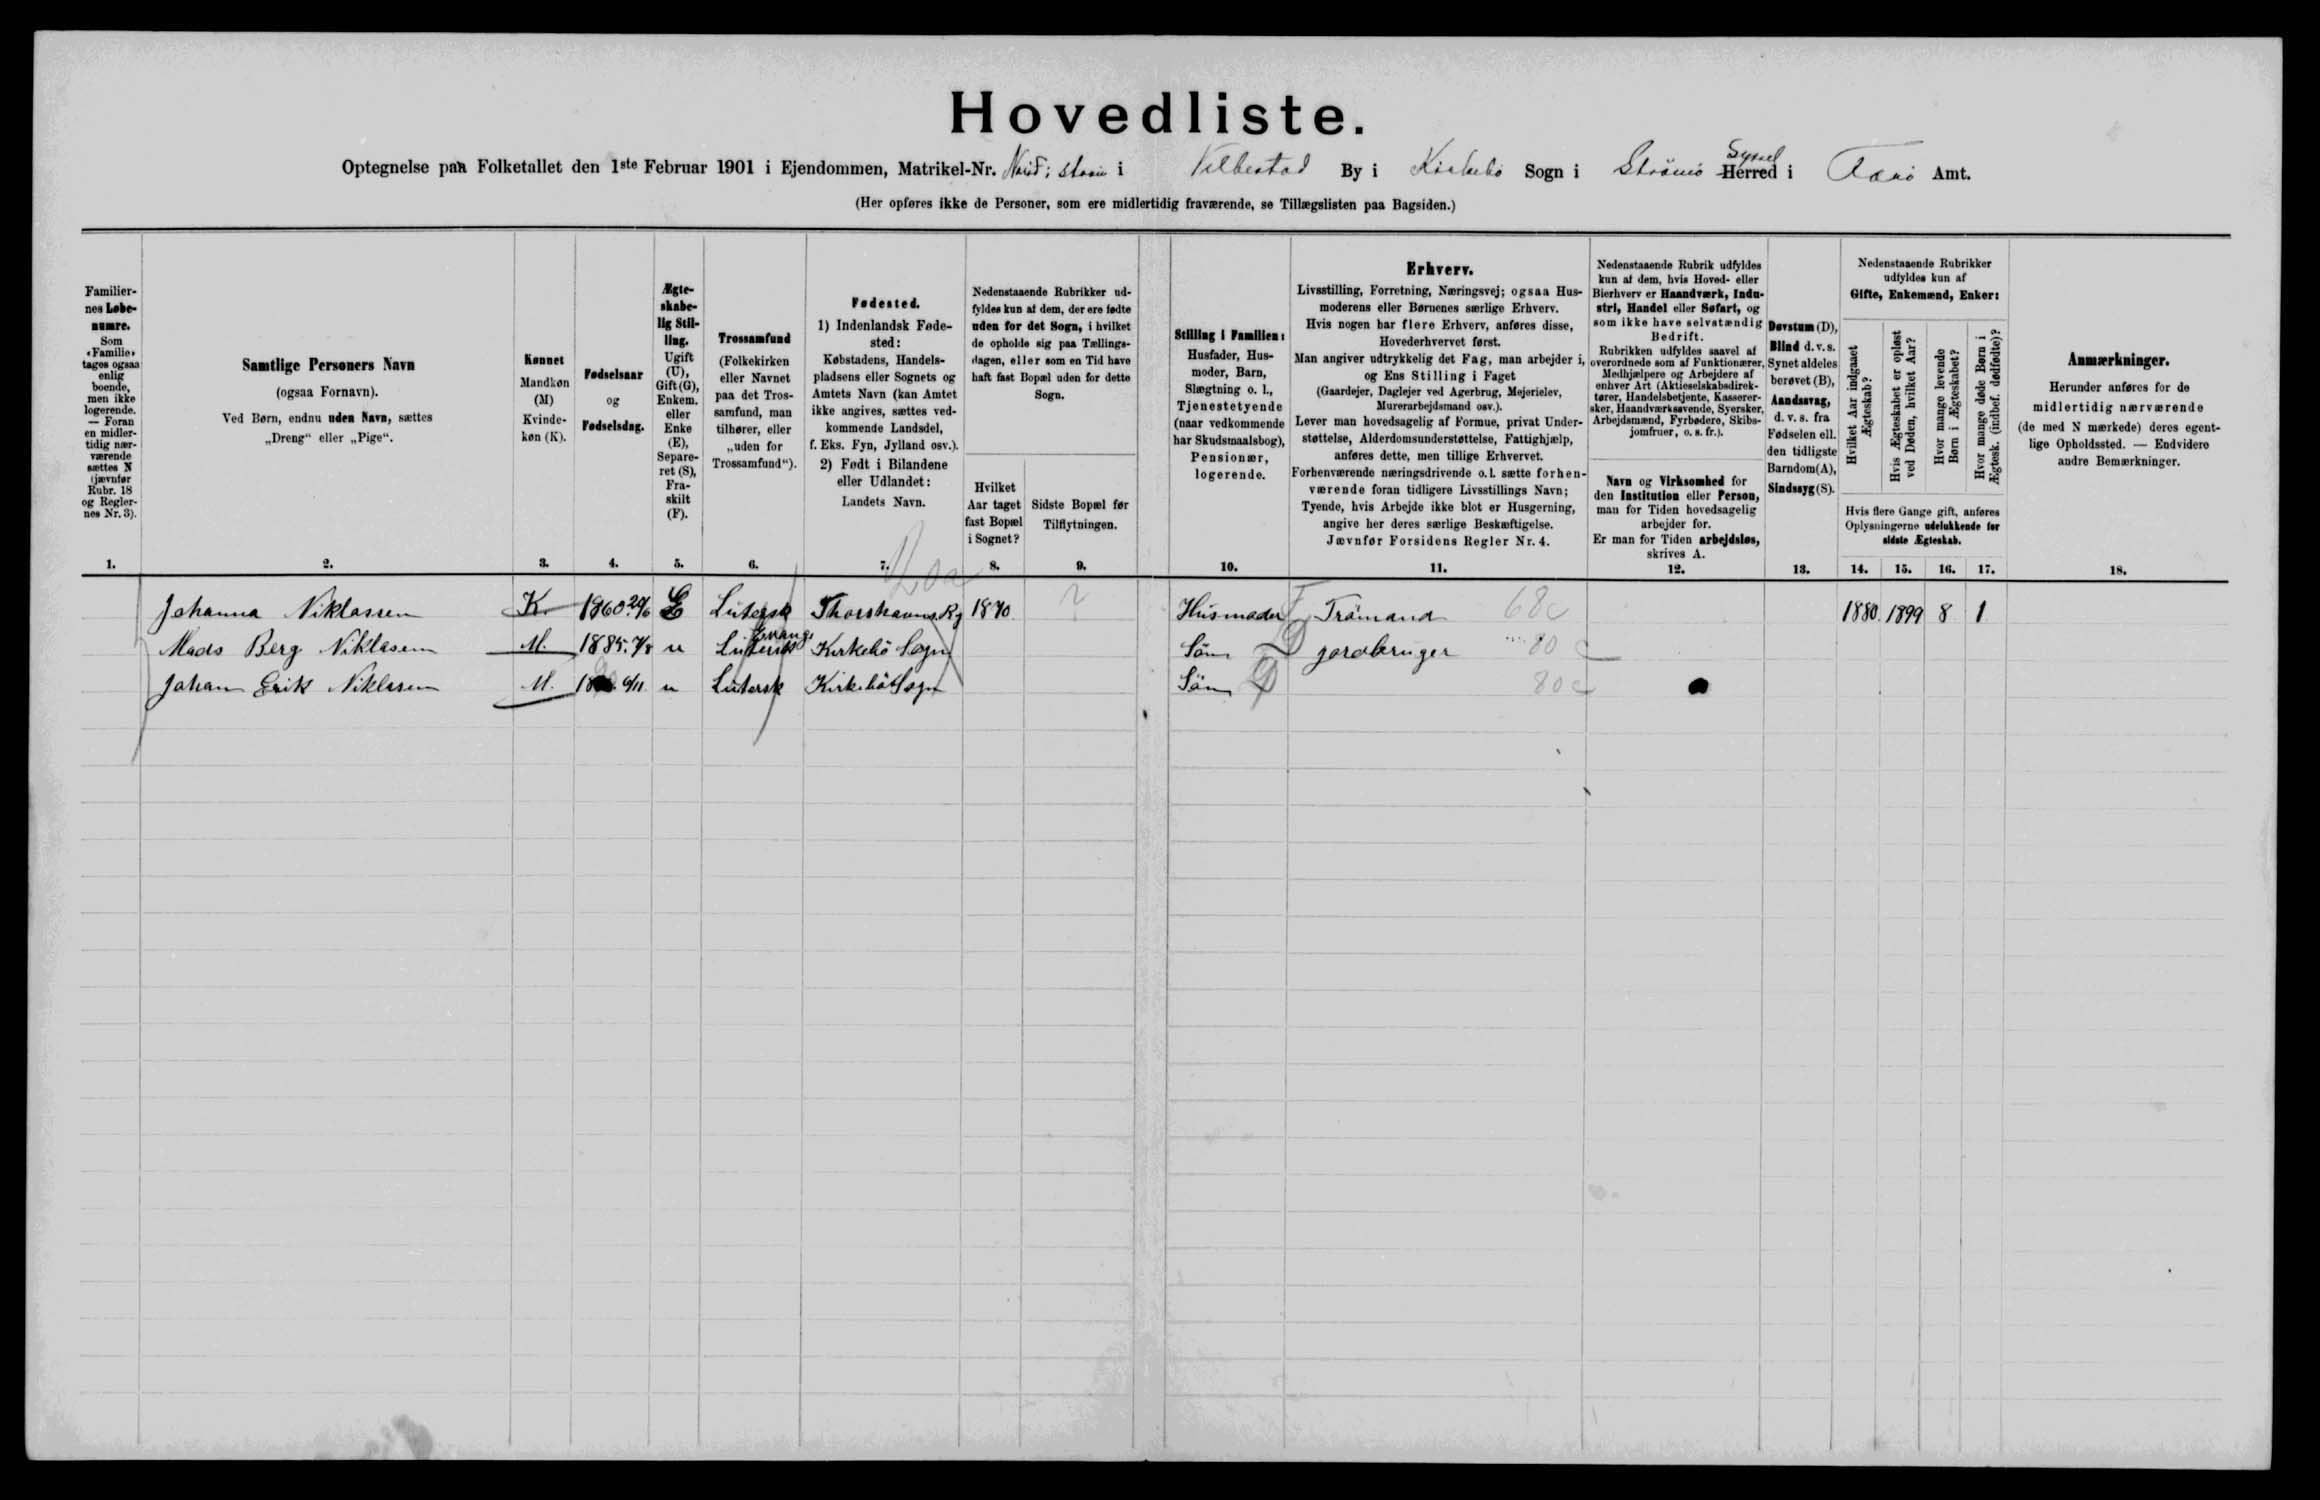 Hovedliste.
Optegnelse paa Folketallet den 1ste Februar 1901 i Ejendommen, Matrikel-Nr. i Velbestad By i Kirkebö Sogn i Strömö Syssel Herred i Færö Amt.
(Her opføres ikke de Personer, som ere midlertidig fraværende, se Tillægslisten paa Bagsiden.)
Familiernes Løbenumre.
Som «Familie» tages ogsaa enlig boende, men ikke logerende. — Foran en midlertidig nærværende sættes N (jævnfør Rubr. 18 og Reglernes Nr. 3).
Samtlige Personers Navn
(ogsaa Fornavn).
Ved Børn, endnu uden Navn, sættes
„Dreng“ eller „Pige“.
Kønnet
Mandkøn
(M)
Kvindekøn (K).
Fødselsaar
og
Fødselsdag.
Ægteskabelig Stilling.
Ugift (U), Gift (G), Enkem. eller Enke (E), Separeret (S), Fraskilt (F).
Trossamfund
(Folkekirken eller Navnet paa det Trossamfund, man tilhører, eller „uden for Trossamfund“).
Fødested.
1) Indenlandsk Fødested:
Købstadens, Handelspladsens eller Sognets og Amtets Navn (kan Amtet ikke angives, sættes vedkommende Landsdel, f. Eks. Fyn, Jylland osv.).
2) Født i Bilandene eller Udlandet:
Landets Navn.
Nedenstaaende Rubrikker udfyldes kun af dem, der ere fødte uden for det Sogn, i hvilket de opholde sig paa Tællingsdagen, eller som en Tid have haft fast Bopæl uden for dette Sogn.
Hvilket Aar taget fast Bopæl i Sognet?
Sidste Bopæl før Tilflytningen.
Stilling i Familien:
Husfader, Husmoder, Barn, Slægtning o. l., Tjenestetyende (naar vedkommende har Skudsmaalsbog), Pensionær, logerende.
Erhverv.
Livsstilling, Forretning, Næringsvej; ogsaa Husmoderens eller Børnenes særlige Erhverv.
Hvis nogen har flere Erhverv, anføres disse, Hovederhvervet først.
Man angiver udtrykkelig det Fag, man arbejder i, og Ens Stilling i Faget
(Gaardejer, Daglejer ved Agerbrug, Mejerielev, Murerarbejdsmand osv.).
Lever man hovedsagelig af Formue, privat Understøttelse, Alderdomsunderstøttelse, Fattighjælp, anføres dette, men tillige Erhvervet.
Forhenværende næringsdrivende o. l. sætte forhenværende foran tidligere Livsstillings Navn;
Tyende, hvis Arbejde ikke blot er Husgerning, angive her deres særlige Beskæftigelse.
Jævnfør Forsidens Regler Nr. 4.
Nedenstaaende Rubrik udfyldes kun af dem, hvis Hoved- eller Bierhverv er Haandværk, Industri, Handel eller Søfart, og som ikke have selvstændig Bedrift.
Rubrikken udfyldes saavel af overordnede som af Funktionærer, Medhjælpere og Arbejdere af enhver Art (Aktieselskabsdirektører, Handelsbetjente, Kasserersker, Haandværkssvende, Syersker, Arbejdsmænd, Fyrbødere, Skibsjomfruer, o. s. fr.).
Navn og Virksomhed for den Institution eller Person, man for Tiden hovedsagelig arbejder for.
Er man for Tiden arbejdsløs, skrives A.
Døvstum (D), Blind d. v. s. Synet aldeles berøvet (B), Aandssvag, d. v. s. fra Fødselen ell. den tidligste Barndom (A), Sindssyg (S).
Nedenstaaende Rubrikker udfyldes kun af
Gifte, Enkemænd, Enker:
Hvilket Aar indgaaet Ægteskab?
Hvis Ægteskabet er opløst ved Døden, hvilket Aar?
Hvor mange levende Børn i Ægteskabet?
Hvor mange døde Børn i Ægtesk. (indbef. dødfødte)?
Hvis flere Gange gift, anføres Oplysningerne udelukkende for sidste Ægteskab.
Anmærkninger.
Herunder anføres for de midlertidig nærværende (de med N mærkede) deres egentlige Opholdssted. — Endvidere andre Bemærkninger.
1. 2. 3. 4. 5. 6. 7. 8. 9. 10. 11. 12. 13. 14. 15. 16. 17. 18.
Johanna Niklassen K 1860 E Lutersk Thorshavns 1870 Husmoder 68c 1880. 1899 8 1
Mads Berg Niklasen M. 1885. u Evang Lutersk Kirkebö Sogn Sön D jordbruger 80 c
Johan Erik Niklasen M. 6/11 u Lutersk Kirkebö Sogn Sön D 80 c